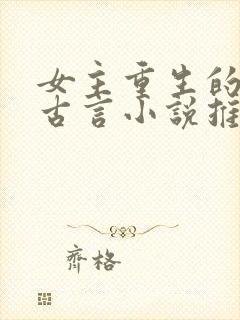 女主重生的
古言小說推
齊格